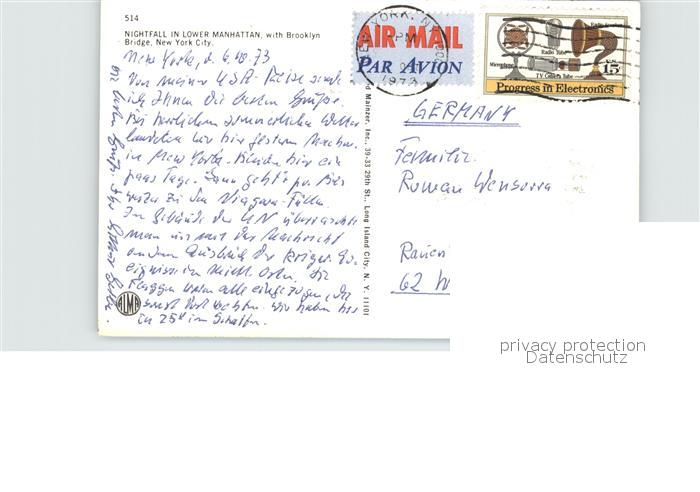 514
NIGHTFALL IN LOWER MANHATTAN, with Brooklyn
Bridge, New York City.
New York, d. 6.10.73
Von meiner USA-Reise sende
ich Ihnen die besten Grüße.
Bei herrlichem sommerlichen Wetter
landeten wir hier gestern Nachm.
in New York. Bleiben hier ein
paar Tage. Dann geht's per Bus
weiter zu den Niagara-Fällen.
Im Gebäude der UN überraschte
man uns mit der Nachricht
von dem Ausbruch der kriegr. Er-
eignisse im Mittl. Osten. Die
Flaggen waren alle eingezogen, die
sonst dort wehten. Wir haben hier
im Schatten.
ALMA
Mainzer, Inc., 39-33 29th St., Long Island City, N. Y. 11101
AIR MAIL
PAR AVION
NEW YORK, N.Y.
PM
1973
Radio Tube
Microphone
TV Camera Tube
U.S.
15c
Progress in Electronics
GERMANY
Familie
Roman
62 W
privacy protection
Datenschutz